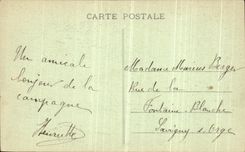 CARTE POSTALE
Un amical
bonjour de la
campagne
Henriette
Madame Marius Berger
Rue de la
Fontaine Blanche
Savigny s. Orge